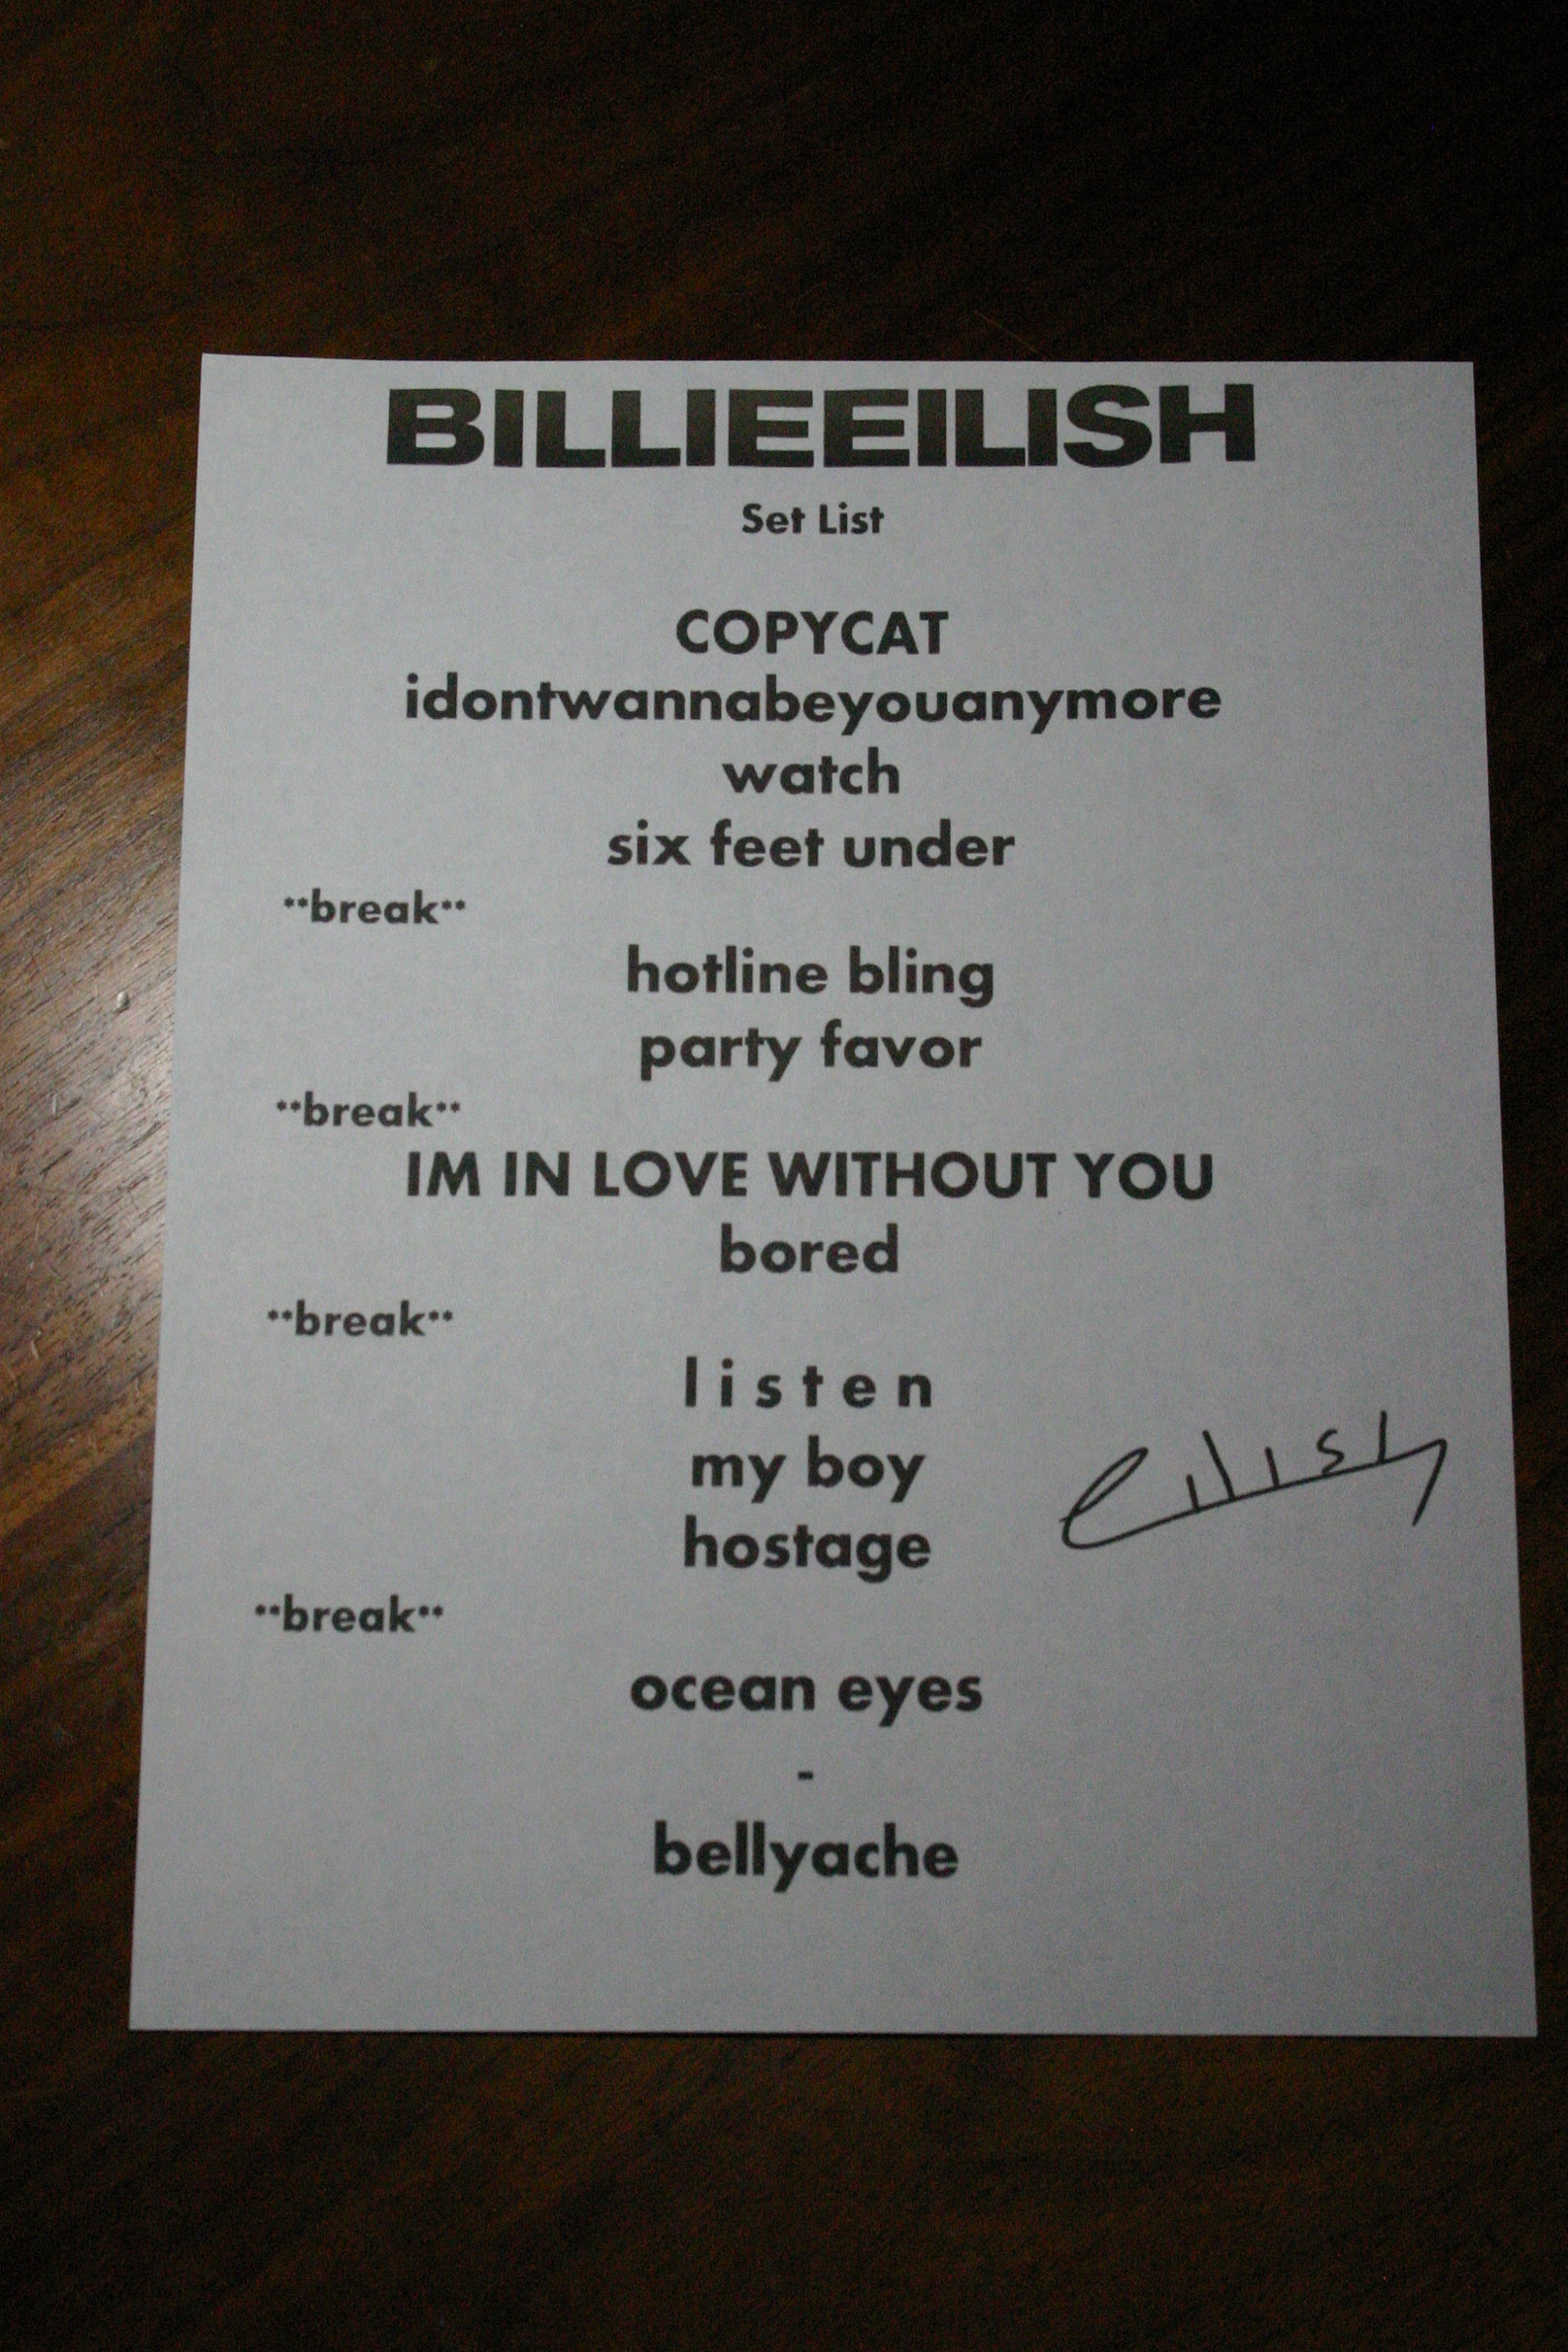 BILLIEEILISH
Set List
COPYCAT
idontwannabeyouanymore
watch
six feet under
**break**
hotline bling
party favor
**break**
IM IN LOVE WITHOUT YOU
bored
**break**
l i s t e n
my boy
eilish
hostage
**break**
ocean eyes
-
bellyache